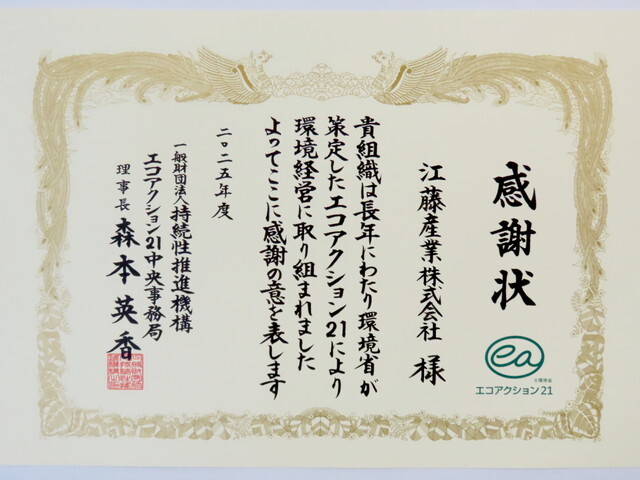 感謝状
江藤産業株式会社 様
貴組織は長年にわたり環境省が
策定したエコアクション21により
環境経営に取り組まれました
よってここに感謝の意を表します
二〇二五年度
一般財団法人 持続性推進機構
エコアクション21中央事務局
理事長 森本英香
ea
エコアクション21